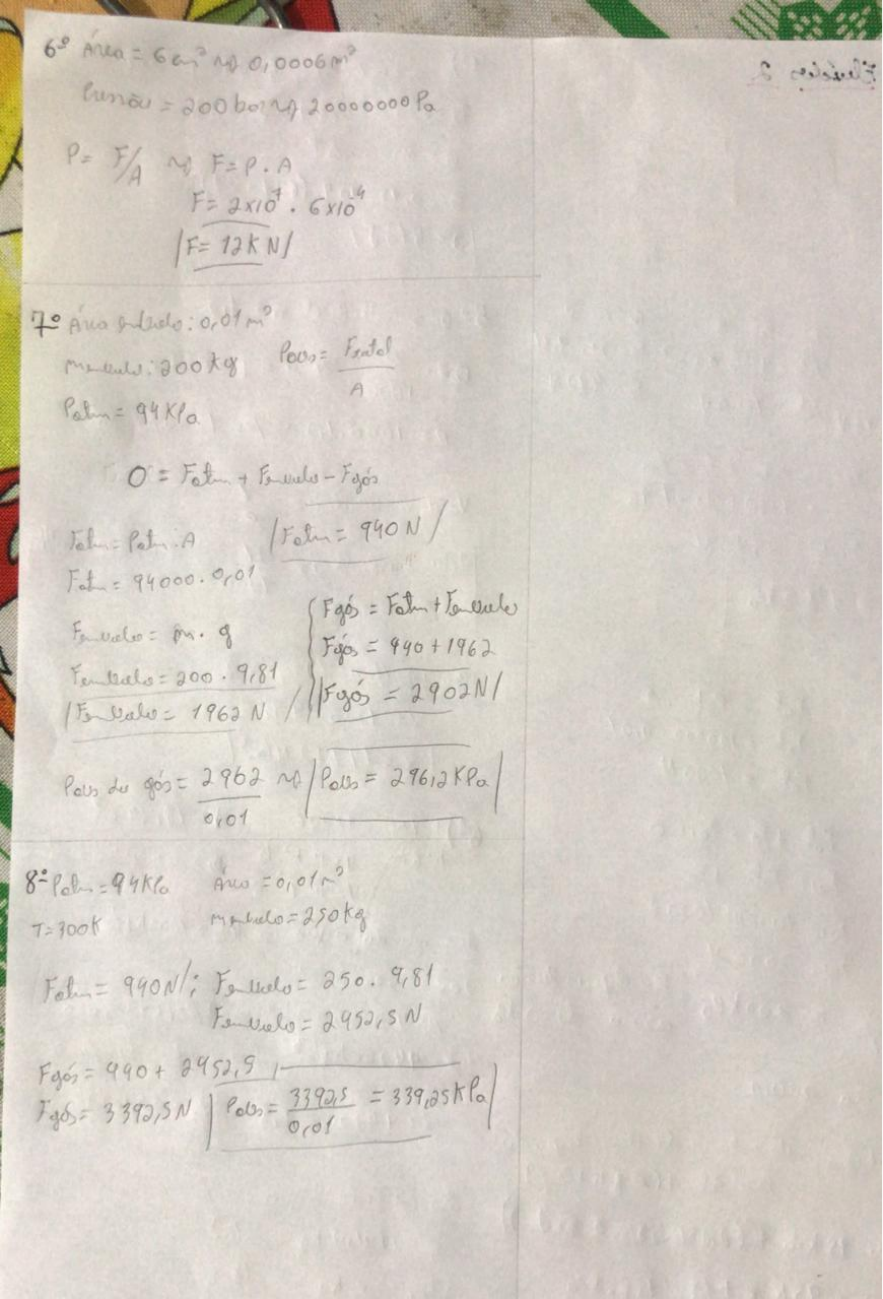 6º Área = 6 cm² ⇝ 0,0006 m²
Pressão = 200 bar ⇝ 20000000 Pa
P = F/A ⇝ F = P . A
F = 2x10⁷ . 6x10⁻⁴
|F = 12 KN|
7º Área êmbolo: 0,01 m²
m êmbolo: 200 kg Pabs = Ftotal / A
Patm = 94 KPa
0 = Fatm + Fêmbolo - Fgás
Fatm = Patm . A |Fatm = 940 N|
Fatm = 94000 . 0,01
Fêmbolo = m . g
Fêmbolo = 200 . 9,81
|Fêmbolo = 1962 N|
Fgás = Fatm + Fêmbolo
Fgás = 940 + 1962
|Fgás = 2902 N|
Pabs do gás = 2962 / 0,01 ⇝ |Pabs = 296,2 KPa|
8º Patm = 94 KPa Área = 0,01 m²
T = 300 K m êmbolo = 250 kg
Fatm = 940 N/; Fêmbolo = 250 . 9,81
Fêmbolo = 2452,5 N
Fgás = 940 + 2452,5
Fgás = 3392,5 N |Pabs = 3392,5 / 0,01 = 339,25 KPa|